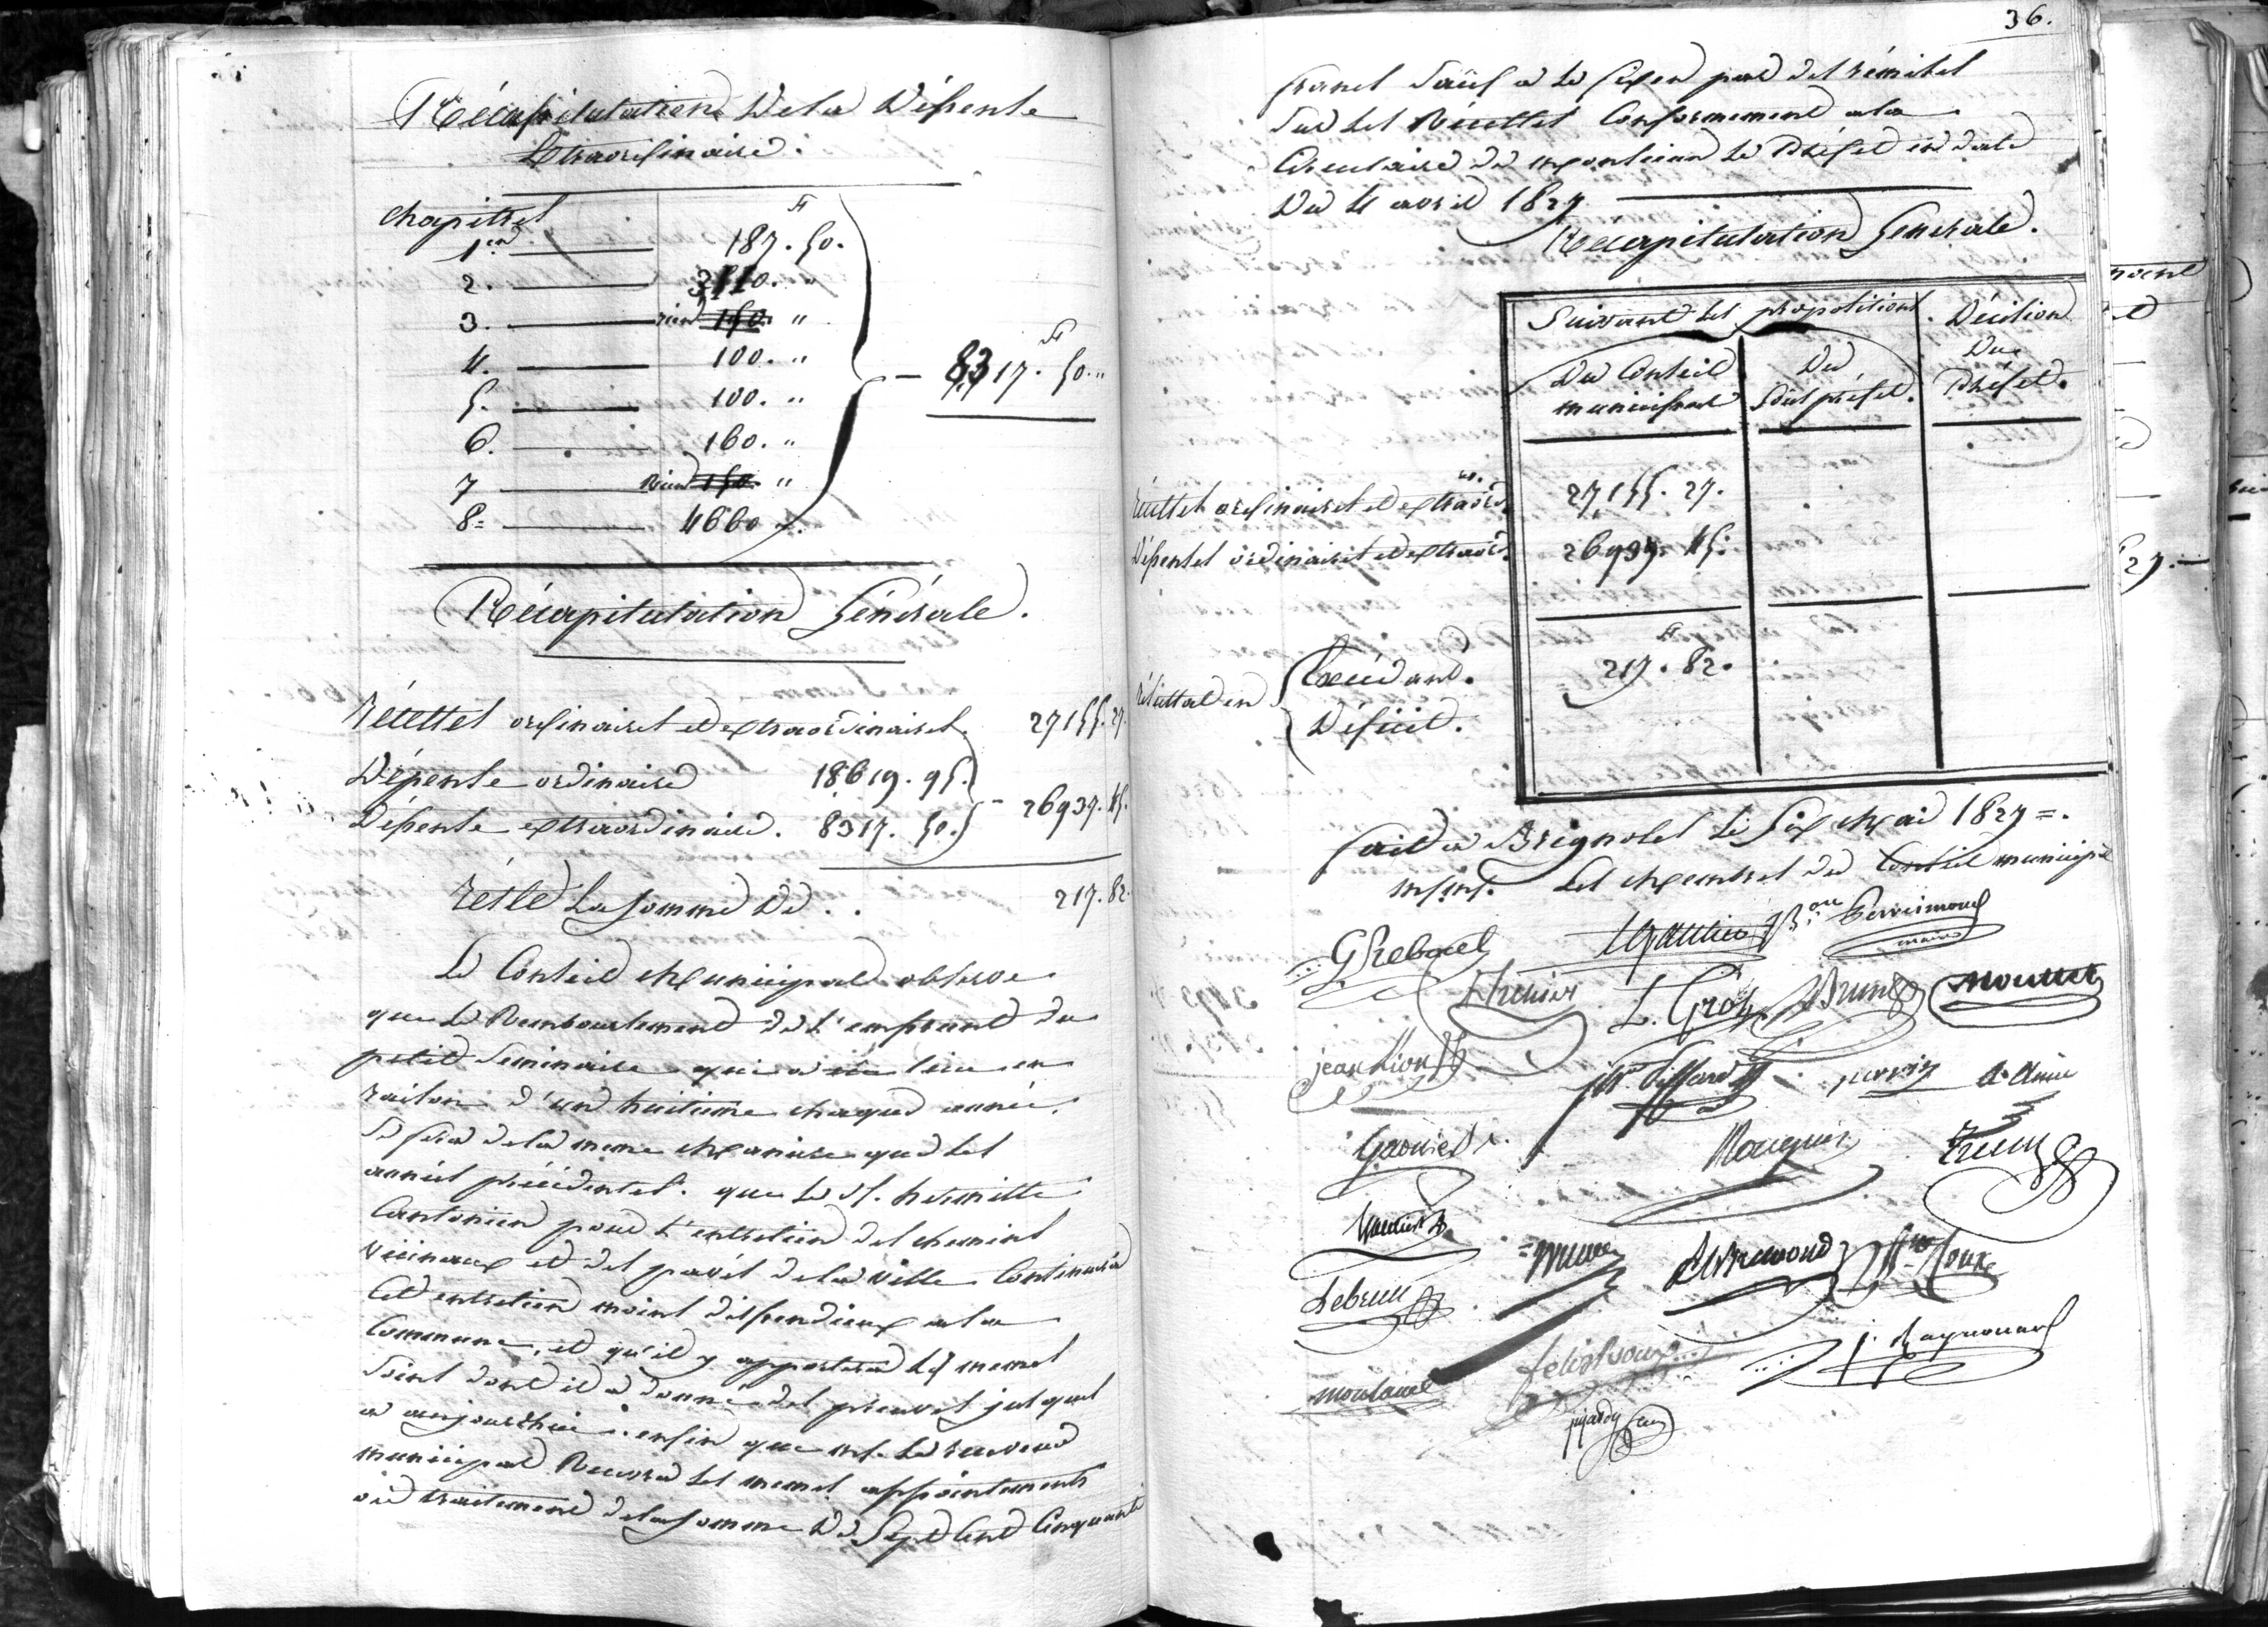 Récapitulation De la Dépense
Extraordinaire.
chapitres
fr
1er 187. 50.
2. 3110.
3. rien 150. "
4. 100. "
5. 100. "
6. 160. "
7 Rien 150. "
8= 4660 ".
fr
8317. 50. "
Récapitulation Générale.
Récettes ordinaires et extraordinaires. 27155. 27.
Dépense ordinaire 18619. 95.
Dépense extraordinaire. 8317. 50. - 26937. 45.
reste La somme De . . 217. 82.
Le Conseil Municipal observe
que Le Remboursement de L'emprunt du
petit Seminaire qui a eu lieu en
raison d'un huitieme chaque année,
se fera de la meme Maniere que les
années précédentes. que Le Sr. hermitte
Cantonier pour L'entretien des chemins
vicinaux et des pavés de la ville Continuera
Cet entretien moins dispendieux a la
Commune, et qu'il y apportera les memes
soins dont il a donné des preuves jusques
a aujourdhui. enfin que Mr. Le receveur
municipal Recevra les memes appointements
ou traitement de la somme De Sept Cent Cinquante
36.
francs sauf a Le fixer par des remises
sur les Récettes Conformement a la
Circulaire de monsieur Le Préfet en date
Du 4 avril 1827
Récapitulation Générale.
Suivant les propositions
Décision
Du
Préfet.
Du Conseil
municipal
Du
Sous préfet.
Récettes ordinaires et extraord. 27155. 27.
Dépenses ordinaires et extraord. 26937. 45.
Résultat en
Excédant.
fr
217. 82.
Déficit.
fait a Brignoles Le Six Mai 1827 =.
MM. Les Membres du Conseil municipal
G Rebouel
Gautier
Bon Perrimond
maire
L. Gros
Brun
Mouttet
jean Lion
Giffard
Maquin
Lebrun
A Bremond
Roux
moulard
félix Roux
j. Raynouard